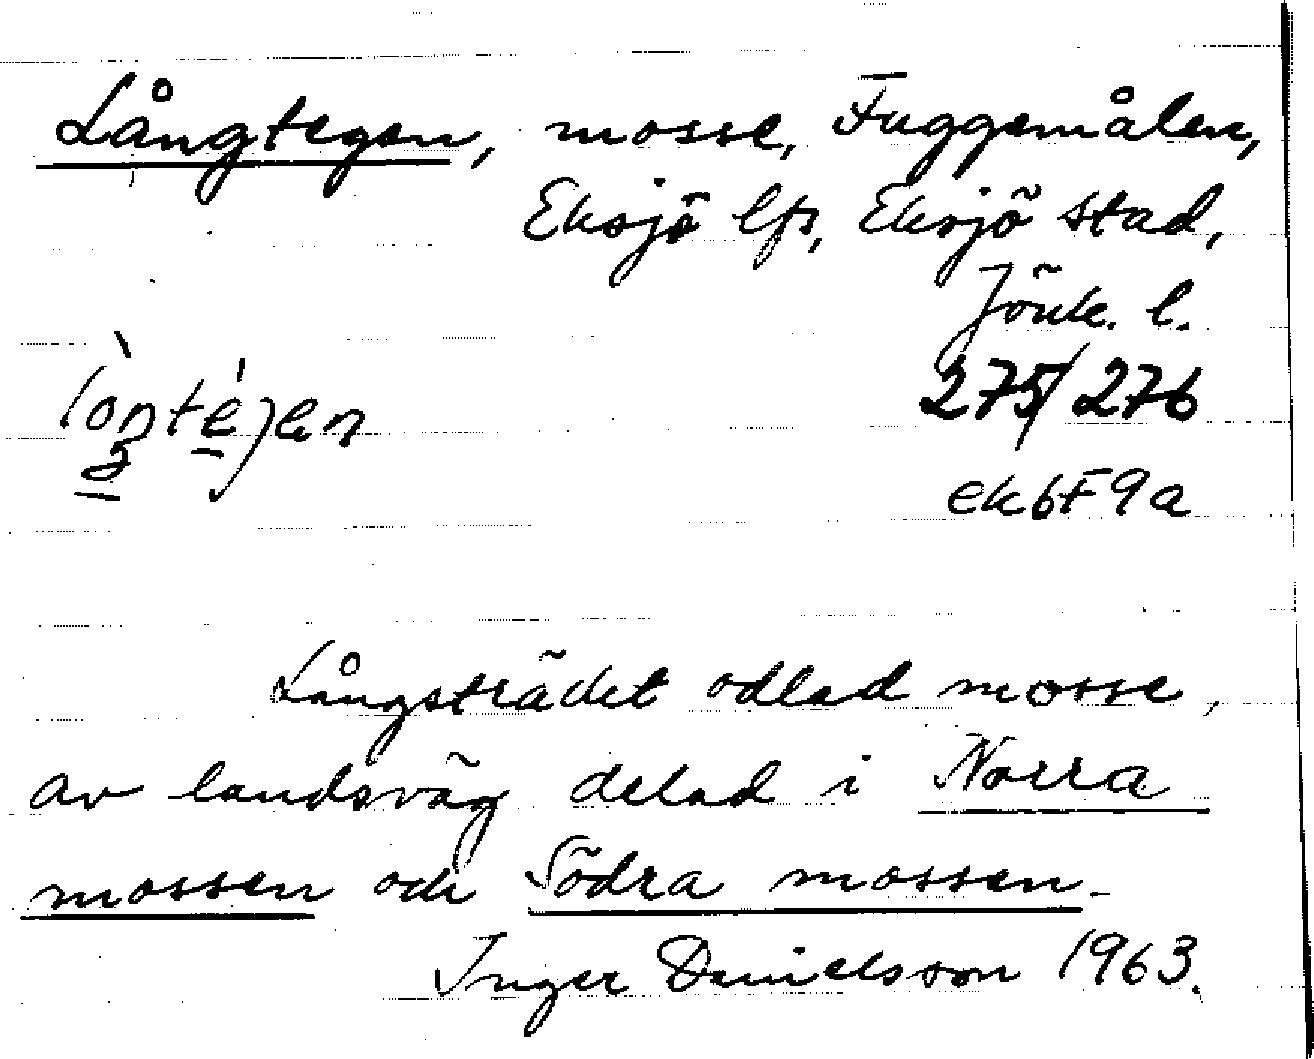 Långtegen, mosse, Fuggemålen,
Eksjö lfs, Eksjö stad,
Jönk. l.
275/276
ek6F9a
Långsträckt odlad mosse,
av landsväg delad i Norra
mossen och Södra mossen.
Inger Danielsson 1963.